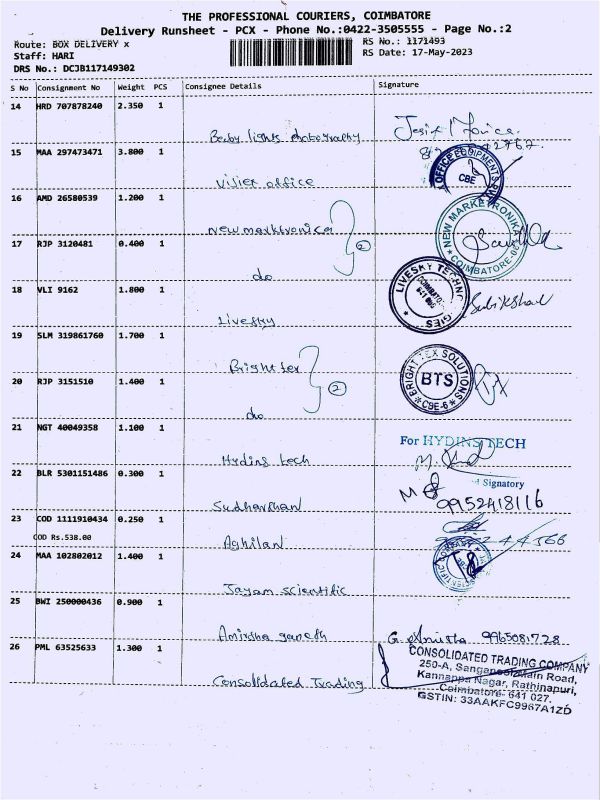 THE PROFESSIONAL COURIERS, COIMBATORE
Delivery Runsheet - PCX - Phone No.:0422-3505555 - Page No.:2
Route: BOX DELIVERY x
RS No.: 1171493
Staff: HARI
RS Date: 17-May-2023
DRS No.: DCJB117149302
S No Consignment No Weight PCS Consignee Details Signature
14 HRD 707878240 2.350 1
Baby lights photography
15 MAA 297473471 3.800 1
OFFICE EQUIPMENTS
CBE
office
16 AMD 26580539 1.200 1
New marktronica
NEW MARKETRONIKA
COIMBATORE
2
17 RJP 3120481 0.400 1
do
18 VLI 9162 1.800 1
LIVESKY
Livesky
19 SLM 319861760 1.700 1
Bright tex
BRIGHT TEX SOLUTIONS
BTS
CBE-6
2
20 RJP 3151510 1.400 1
do
21 NGT 40049358 1.100 1
For HYDINS TECH
Hydins tech
Signatory
22 BLR 5301151486 0.300 1
9952418116
Sudharshan
23 COD 1111910434 0.250 1
COD Rs.538.00
Aghilan
24 MAA 102802012 1.400 1
Jayam scientific
25 BWI 250000436 0.900 1
Amirtha ganesh
G. Amirtha 9965081728
26 PML 63525633 1.300 1
Consolidated Trading
CONSOLIDATED TRADING COMPANY
250-A, Sanganoor Main Road,
Kannappa Nagar, Rathinapuri,
Coimbatore- 641 027.
GSTIN: 33AAKFC9967A1ZD